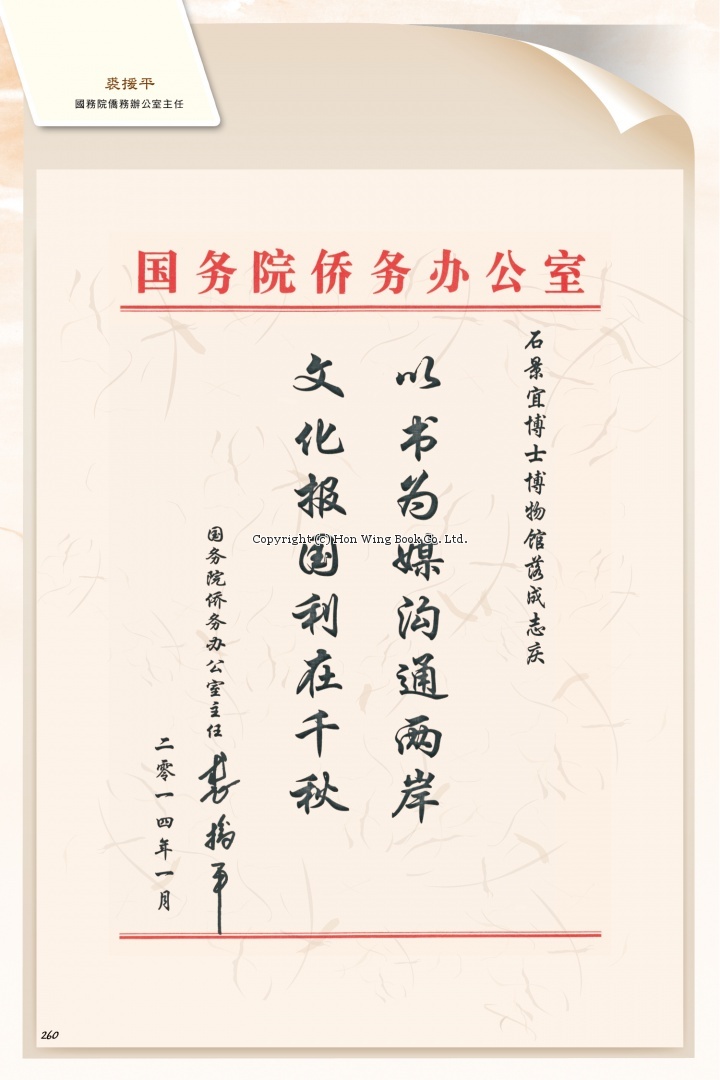 裘援平
國務院僑務辦公室主任
国务院侨务办公室
石景宜博士博物馆落成志庆
以书为媒沟通两岸
文化报国利在千秋
国务院侨务办公室主任
裘援平
二零一四年一月
Copyright (c) Hon Wing Book Co. Ltd.
260